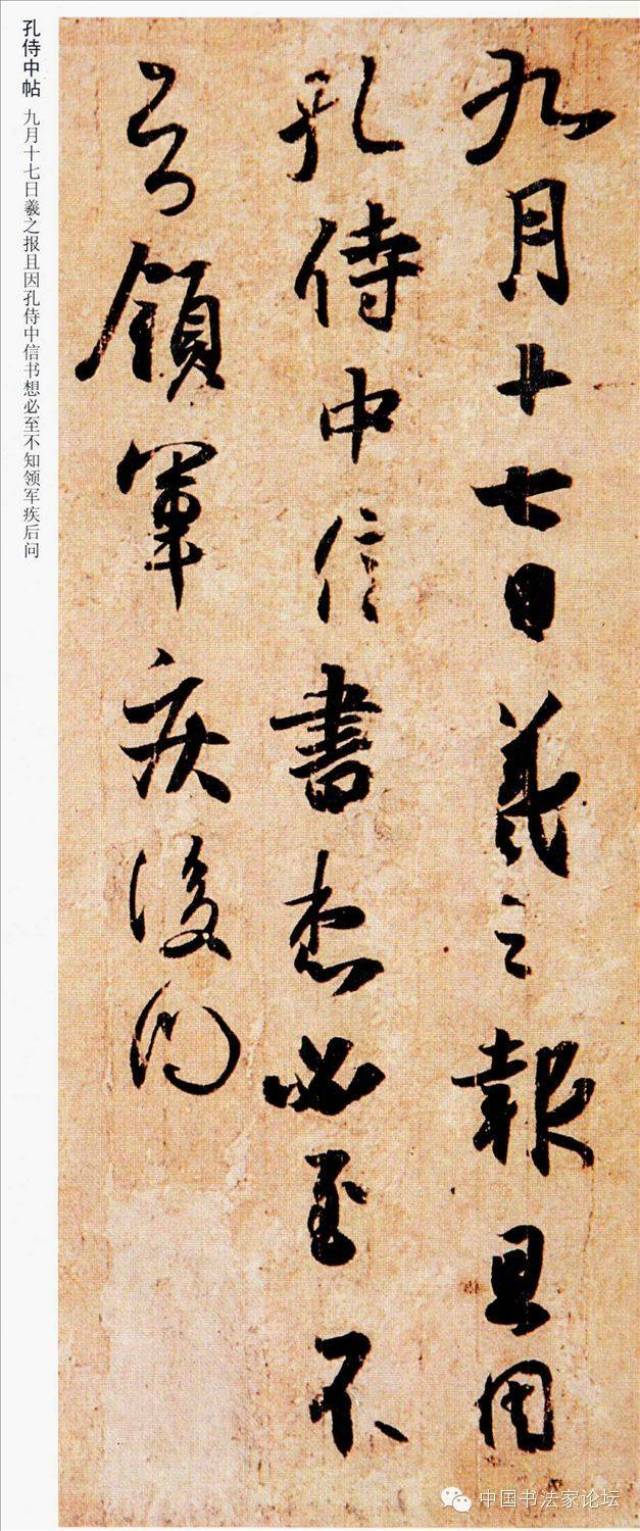 九月十七日羲之報且因
孔侍中信書想必至不
知領軍疾後問
孔侍中帖 九月十七日羲之报且因孔侍中信书想必至不知领军疾后问
中国书法家论坛